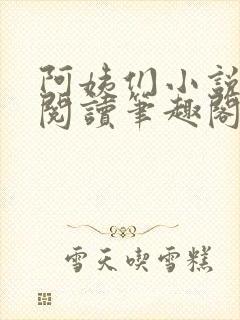 阿姨们小說
閱讀筆趣閣
雪天喫雪糕